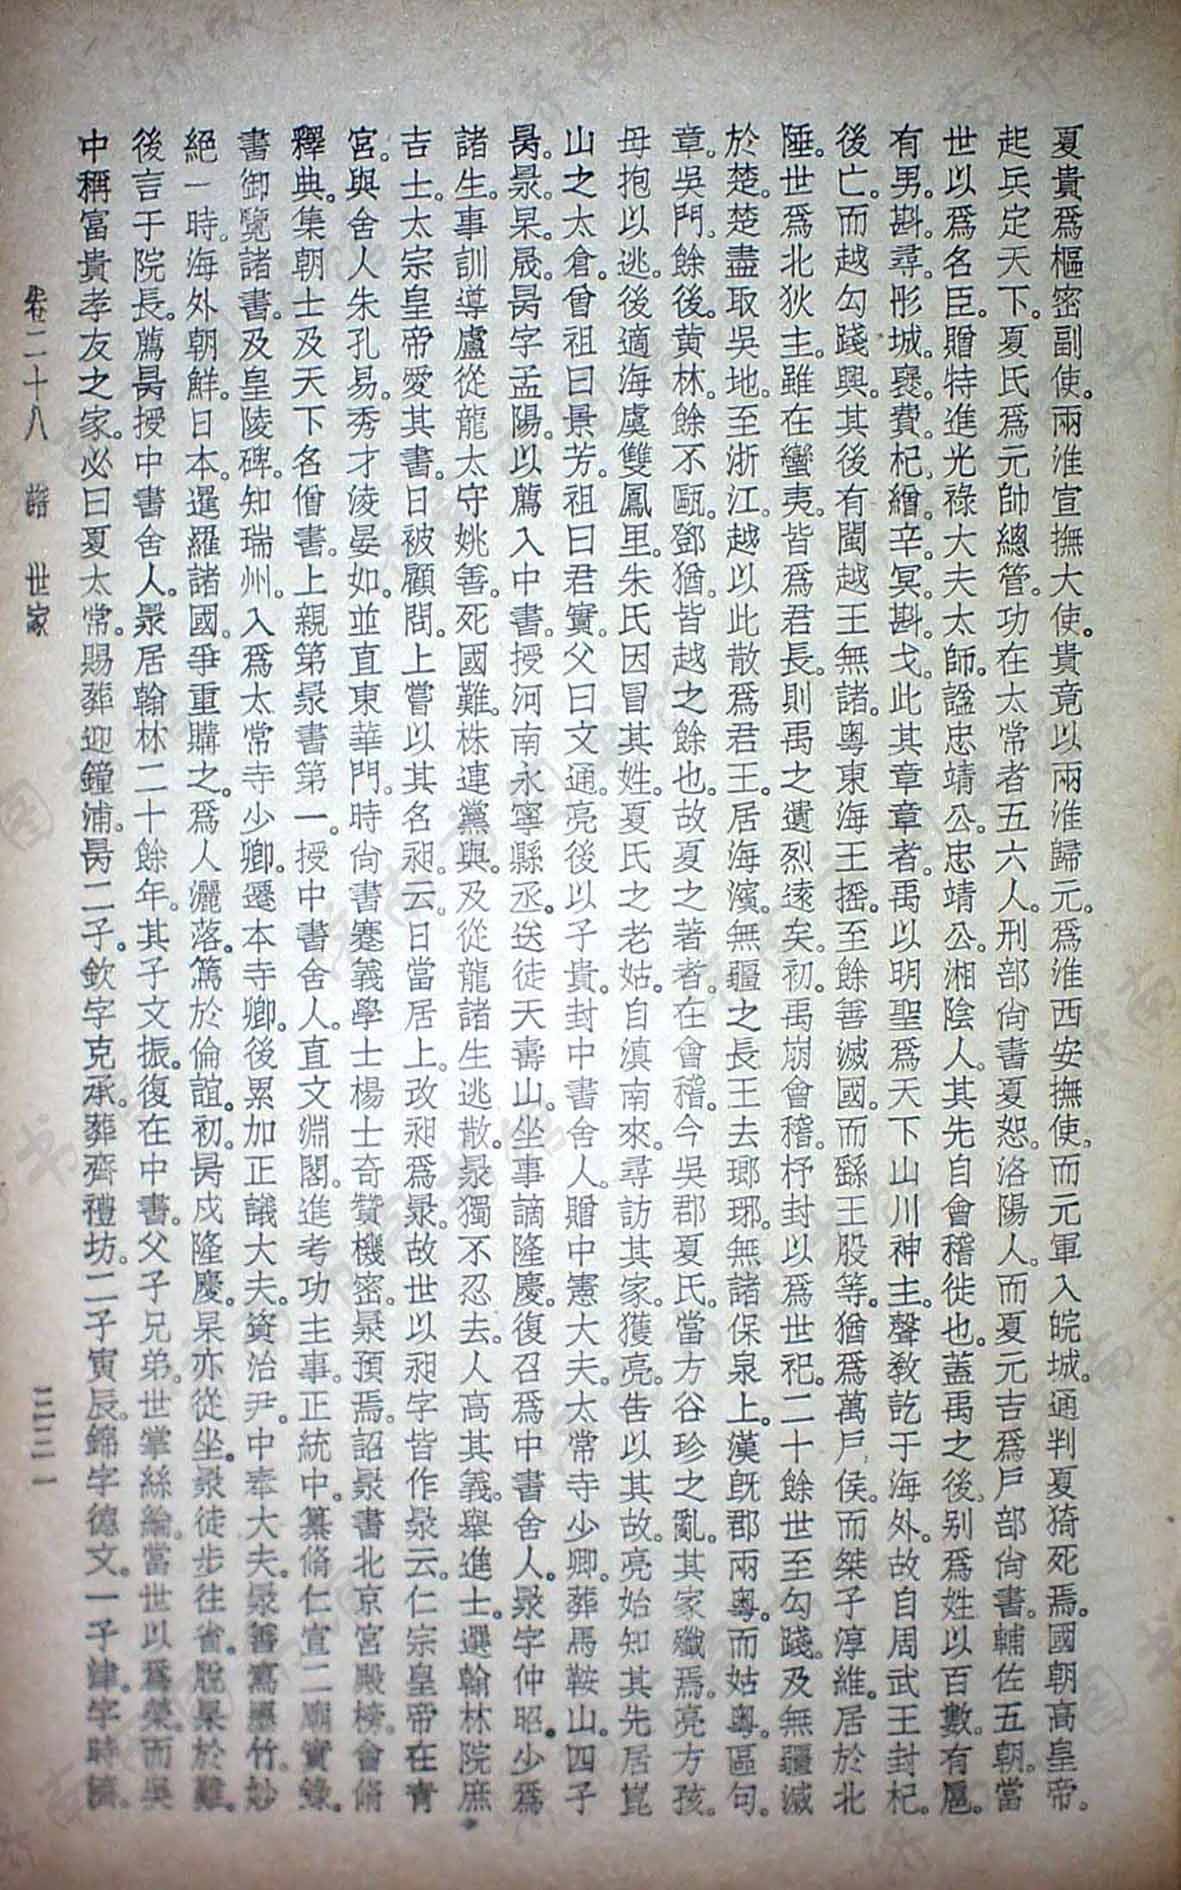 夏貴爲樞密副使。兩淮宣撫大使。貴竟以兩淮歸元。爲淮西安撫使。而元軍入皖城。通判夏猗死焉。國朝高皇帝。
起兵定天下。夏氏爲元帥總管。功在太常者五六人。刑部尙書夏恕。洛陽人。而夏元吉爲戶部尙書。輔佐五朝。當
世以爲名臣。贈特進光祿大夫太師。諡忠靖公。忠靖公。湘陰人。其先自會稽徙也。蓋禹之後。别爲姓以百數。有扈。
有男。斟。尋。彤城。襃。費。杞。繒。辛。冥。斟。戈。此其章章者。禹以明聖爲天下山川神主。聲敎訖于海外。故自周武王封杞。
後亡。而越勾踐興。其後有閩越王無諸。粤東海王搖。至餘善滅國。而繇王股等。猶爲萬戶侯。而桀子淳維。居於北
陲。世爲北狄主。雖在蠻夷。皆爲君長。則禹之遺烈遠矣。初。禹崩會稽。杼封以爲世祀。二十餘世至勾踐。及無疆滅
於楚。楚盡取吳地。至浙江。越以此散爲君王。居海濱。無疆之長王去瑯琊。無諸保泉上。漢旣郡兩粤。而姑粤。區句。
章。吳門。餘後。黃林。餘不。甌。鄧。猶。皆越之餘也。故夏之著者。在會稽。今吳郡夏氏。當方谷珍之亂。其家殲焉。亮方孩。
母抱以逃。後適海虞雙鳳里。朱氏因冒其姓。夏氏之老姑。自滇南來。尋訪其家。獲亮。告以其故。亮始知其先居崑
山之太倉。曾祖曰景芳。祖曰君實。父曰文通。亮後以子貴。封中書舍人。贈中憲大夫。太常寺少卿。葬馬鞍山。四子
昺。㫤。杲。晟。昺字孟陽。以薦入中書。授河南永寧縣丞。送徒天壽山。坐事謫隆慶。復召爲中書舍人。㫤字仲昭。少爲
諸生。事訓導盧從龍。太守姚善。死國難。株連黨與。及從龍諸生逃散。㫤獨不忍去。人高其義。舉進士。選翰林院庶
吉士。太宗皇帝愛其書。日被顧問。上嘗以其名昶。云。日當居上。改昶爲㫤。故世以昶字皆作㫤云。仁宗皇帝在靑
宮。與舍人朱孔易。秀才淩晏如。並直東華門。時尙書蹇義。學士楊士奇贊機密。㫤預焉。詔㫤書北京宮殿榜。會脩
釋典。集朝士及天下名僧書。上親第㫤書第一。授中書舍人。直文淵閣。進考功主事。正統中。纂脩仁宣二廟實錄。
書御覽諸書。及皇陵碑。知瑞州。入爲太常寺少卿。遷本寺卿。後累加正議大夫。資治尹。中奉大夫。㫤善寫墨竹。妙
絕一時。海外朝鮮。日本。暹羅諸國。爭重購之。爲人灑落。篤於倫誼。初。昺戍隆慶。杲亦從坐。㫤徒步往省。脫杲於難。
後言于院長。薦昺授中書舍人。㫤居翰林二十餘年。其子文振。復在中書。父子兄弟。世掌絲綸。當世以爲榮。而吳
中稱富貴孝友之家。必曰夏太常。賜葬迎鐘浦。昺二子。欽字克承。葬齊禮坊。二子寅。辰。錦字德文。一子津。字時濟。
卷二十八 譜 世家 三三一